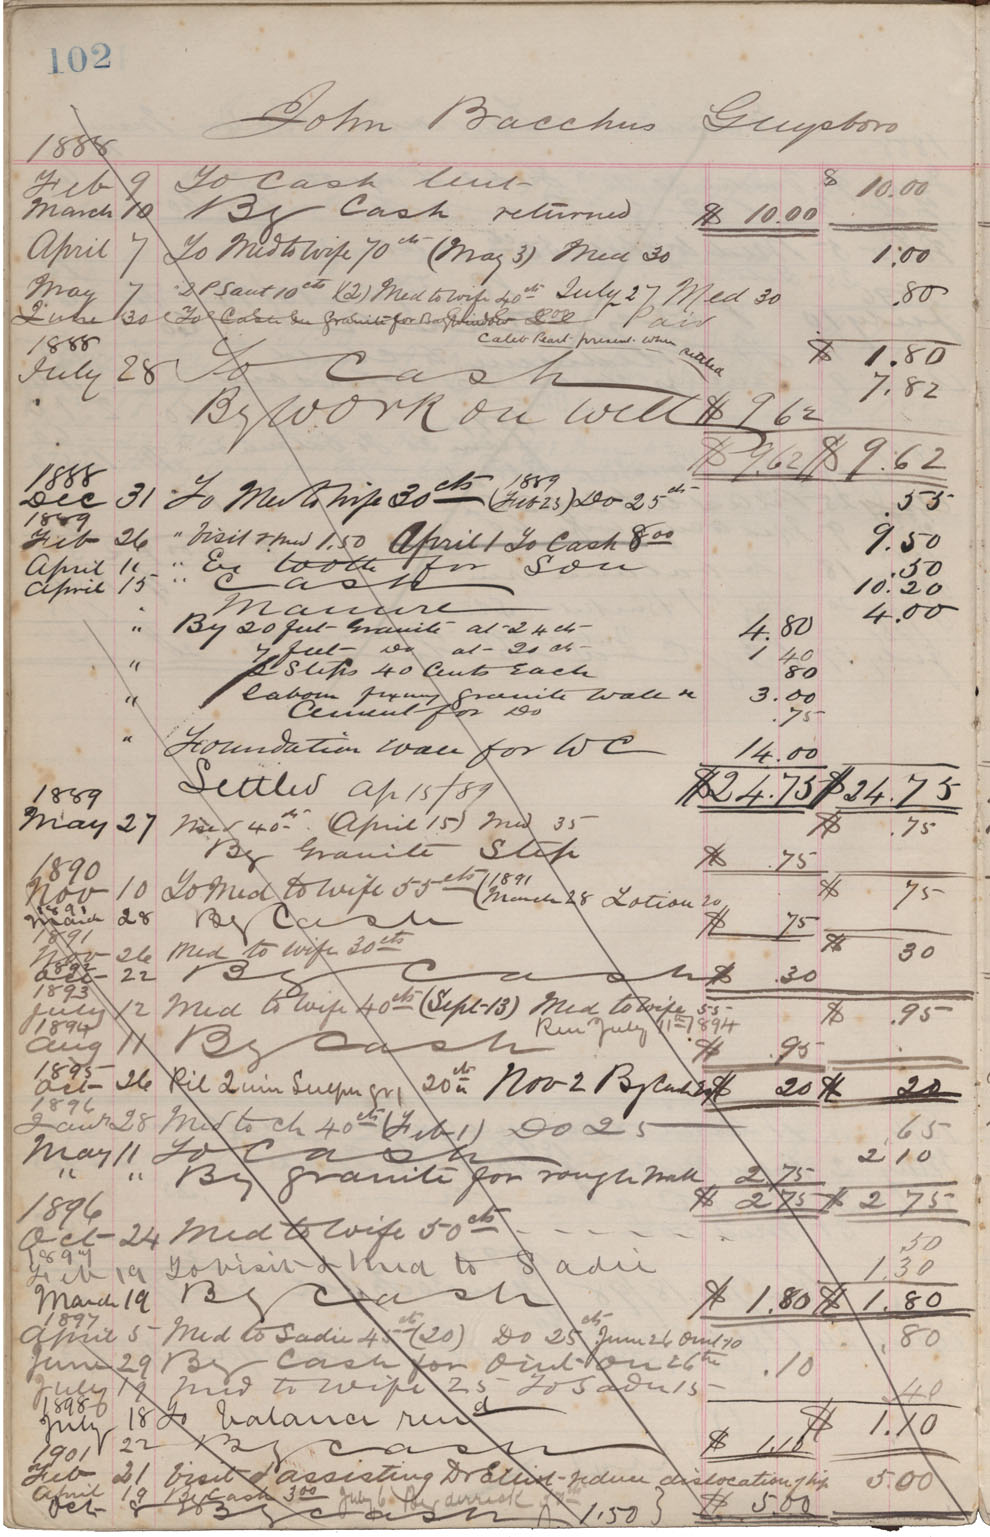 102
John Bacchus Guysboro
1888
Feb 9 To Cash lent $ 10.00
March 10 By Cash returned $ 10.00
April 7 To Med to wife 70cts (May 3) Med 30 1.00
May 7 (2) Med to wife 40cts July 27 Med 30 .80
June 30 To Cash on Granite for Bay Window Paid
Caleb Peart present when settled
1888 $ 1.80
July 28 To Cash 7.82
By Work on Well $ 9 62
$ 9.62 $ 9.62
1888
Dec 31 To Med to Wife 30cts (1889 Feb 23) Do 25cts .55
1889
Feb 26 " Visit & Med 1.50 April 1 To Cash 8.00 9.50
April 11 " Ex tooth for Son .50
April 15 " Cash 10.20
Manure 4.00
" By 20 feet Granite at 24cts 4.80
7 feet Do at 20cts 1 40
" 2 Steps 40 Cents Each 80
" labour fixing granite wall 3.00
Cement for Do .75
" Foundation wall for W C 14.00
Settled Ap 15/89 $24.75 $24.75
1889
May 27 Med 40cts (April 15) Med 35 $ .75
By Granite Step $ .75
1890
Nov 10 To Med to Wife 55cts (1891 March 28 Lotion 20 $ 75
1891
March 28 By Cash $ 75
1891
Nov 26 Med to wife 30cts $ 30
1892
Oct 22 By Cash $ .30
1893
July 12 Med to wife 40cts (Sept 13) Med to wife 55 $ .95
Ren July 11th 1894
1894
Aug 11 By Cash $ .95
1895
Oct 26 20cts Nov 2 By Cash 20 $ 20 $ 20
1896
Jany 28 Med to Ch 40cts (Feb 1) Do 25 .65
May 11 To Cash 2 10
" " By granite for rough Wall 2.75
$ 2 75 $ 2 75
1896
Oct 24 Med to Wife 50cts .50
1897
Feb 19 To Visit & Med to Sadie 1.30
March 19 By Cash $ 1.80 $ 1.80
1897
April 5 Med to Sadie 45cts (20) Do 25cts June 26 Oint 10 .80
June 29 By Cash for Oint on 26th .10
July 19 Med to wife 25 To Sadie 15 40
1898
July 18 To balance rend $ 1.10
22 By Cash $ 1.10
1901
Feb 21 Visit & assisting Dr Elliot reduce dislocation of hip 5.00
April 19 By Cash 3.00 July 6 By derrick
Oct 8 By Cash 1.50 } $ 5.00